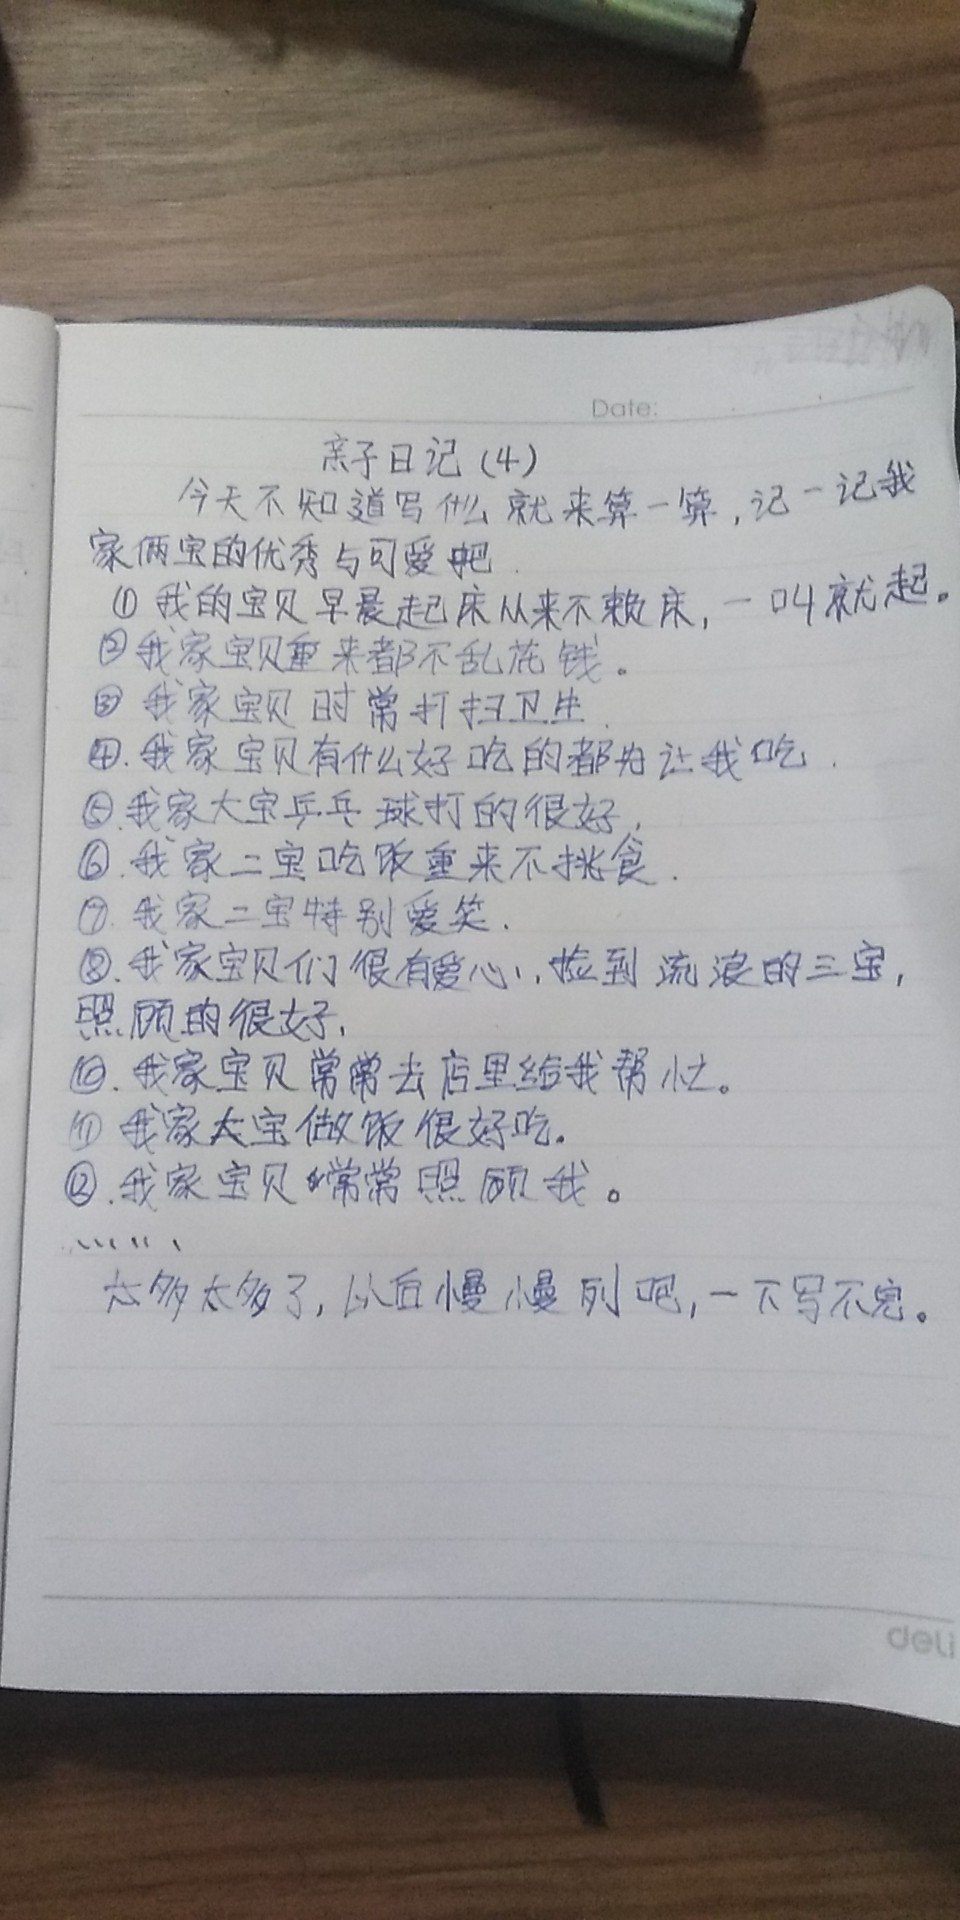 Date:
亲子日记(4)
今天不知道写什么就来算一算,记一记我
家俩宝的优秀与可爱吧.
①我的宝贝早晨起床从来不赖床,一叫就起。
②我家宝贝重来都不乱花钱。
③我家宝贝时常打扫卫生.
④.我家宝贝有什么好吃的都为让我吃.
⑤.我家大宝乒乓球打的很好.
⑥.我家二宝吃饭重来不挑食.
⑦.我家二宝特别爱笑.
⑧.我家宝贝们很有爱心,捡到流浪的三宝,
照顾的很好.
⑩.我家宝贝常常去店里给我帮忙。
⑪我家大宝做饭很好吃.
⑫.我家宝贝常常照顾我。
......
太多太多了,以后慢慢列吧,一下写不完。
deli